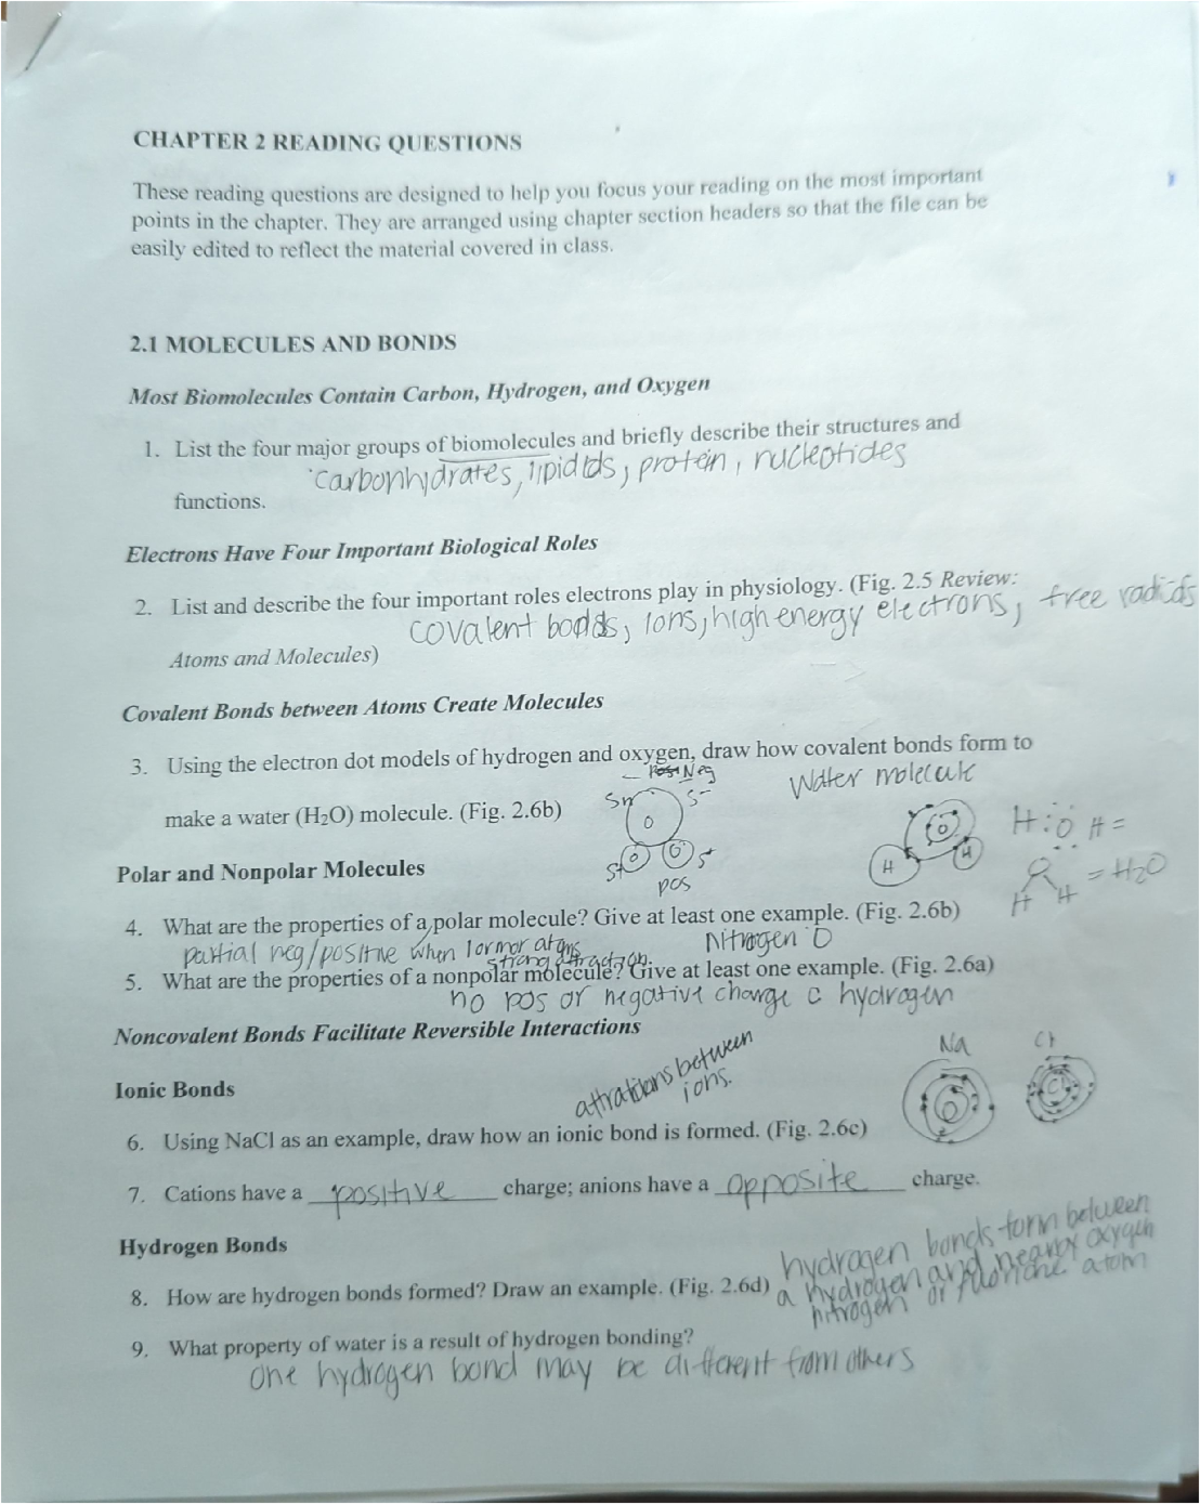 CHAPTER 2 READING QUESTIONS
These reading questions are designed to help you focus your reading on the most important
points in the chapter. They are arranged using chapter section headers so that the file can be
easily edited to reflect the material covered in class.
2.1 MOLECULES AND BONDS
Most Biomolecules Contain Carbon, Hydrogen, and Oxygen
1. List the four major groups of biomolecules and briefly describe their structures and
carbonhydrates, lipidids, protein, nucleotides
functions.
Electrons Have Four Important Biological Roles
2. List and describe the four important roles electrons play in physiology. (Fig. 2.5 Review:
covalent bonds, ions, high energy electrons, free radicals
Atoms and Molecules)
Covalent Bonds between Atoms Create Molecules
3. Using the electron dot models of hydrogen and oxygen, draw how covalent bonds form to
Neg
Water molecule
make a water (H₂O) molecule. (Fig. 2.6b)
O
S-
O
H
H
H:O H=
H H = H₂O
S+
S+
pos
Polar and Nonpolar Molecules
4. What are the properties of a polar molecule? Give at least one example. (Fig. 2.6b)
partial neg/positive when 1 or mor atoms
strong attraction
Nitrogen O
5. What are the properties of a nonpolar molecule? Give at least one example. (Fig. 2.6a)
no pos or negative charge c hydrogen
Noncovalent Bonds Facilitate Reversible Interactions
Ionic Bonds
attrations between
ions.
Na
Cl
6. Using NaCl as an example, draw how an ionic bond is formed. (Fig. 2.6c)
7. Cations have a positive charge; anions have a opposite charge.
Hydrogen Bonds
8. How are hydrogen bonds formed? Draw an example. (Fig. 2.6d)
hydrogen bonds form between
a hydrogen and nearby oxygen
nitrogen or fluorine atom
9. What property of water is a result of hydrogen bonding?
one hydrogen bond may be different from others